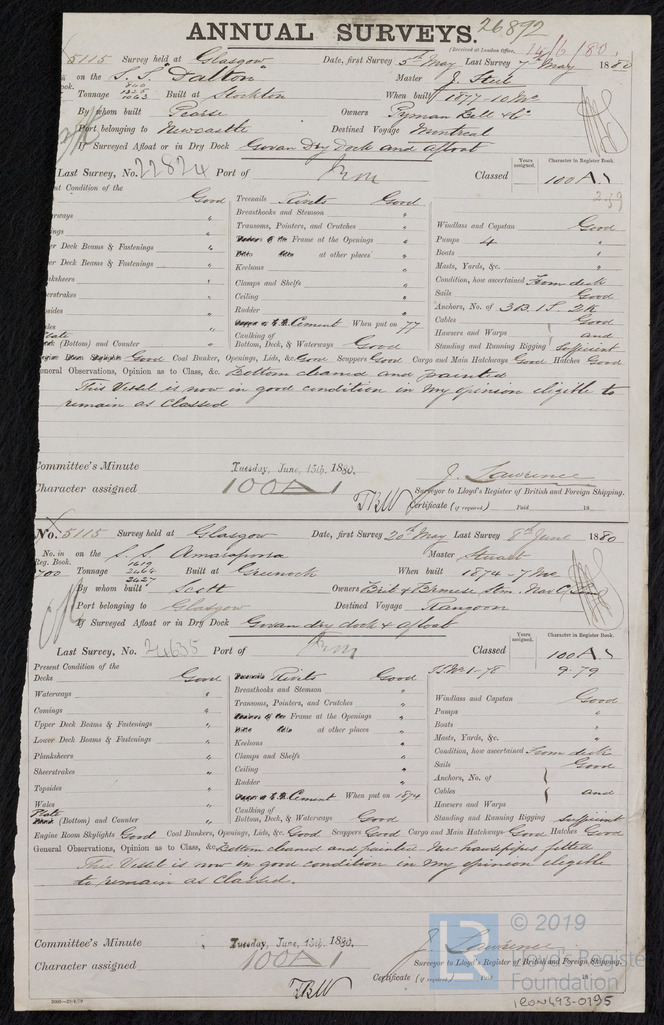 ANNUAL SURVEYS. 26892
(Received at London Office, 14/6/80.
5115 Survey held at Glasgow Date, first Survey 5th May Last Survey 7th May 1880
on the S.S. "Dalton" Master J. Steel
Tonnage 1325 1063 Built at Stockton When built 1877-10 Mo
By whom built Pearse Owners Pyman Bell & Co
Port belonging to Newcastle Destined Voyage Montreal
If Surveyed Afloat or in Dry Dock Govan Dry Dock and afloat
Years assigned. Character in Register Book.
Last Survey, No. 22824 Port of Classed 100A1
2.79
nt Condition of the
Good Treenails Rivets Good
Breasthooks and Stemson "
erways " Transoms, Pointers, and Crutches " Windlass and Capstan Good
ings " Frame at the Openings " Pumps 4 "
er Deck Beams & Fastenings " at other places " Boats "
Keelsons " Masts, Yards, &c. "
er Deck Beams & Fastenings " Clamps and Shelfs " Condition, how ascertained From deck
ksheers " Ceiling " Sails Good
erstrakes " Rudder " Anchors, No. of 3B. 1S. 2K
sides " Cement When put on 77 Cables Good
ales " Caulking of Hawsers and Warps and
Plate (Bottom) and Counter " Bottom, Deck, & Waterways Good Standing and Running Rigging Sufficient
Good Coal Bunker, Openings, Lids, &c. Good Scuppers Good Cargo and Main Hatchways Good Hatches Good
eneral Observations, Opinion as to Class, &c. Bottom cleaned and painted
This Vessel is now in good condition in my opinion eligible to
remain as Classed
Committee's Minute Tuesday, June, 15th, 1880.
J. Lawrence
Character assigned 100A1 Surveyor to Lloyd's Register of British and Foreign Shipping.
TBW Certificate (if required) Paid 18
No. 5115 Survey held at Glasgow Date, first Survey 20th May Last Survey 8th June 1880
No. in Reg. Book. on the S.S. Amarapoora Master Stuart
700 Tonnage 1619 2464 2427 Built at Greenock When built 1874-7 Mo
By whom built Scott Owners Brit & Burmese Stm. Nav. Co
Port belonging to Glasgow Destined Voyage Rangoon
If Surveyed Afloat or in Dry Dock Govan dry dock & afloat
Years assigned. Character in Register Book.
Last Survey, No. 24635 Port of Classed 100A1
S.S. No. 1-78 9.79
Present Condition of the
Decks Good Rivets Good
Breasthooks and Stemson "
Waterways " Transoms, Pointers, and Crutches " Windlass and Capstan Good
Comings " Frame at the Openings " Pumps "
Upper Deck Beams & Fastenings " at other places " Boats "
Lower Deck Beams & Fastenings " Keelsons " Masts, Yards, &c. "
Planksheers " Clamps and Shelfs " Condition, how ascertained From deck
Sheerstrakes " Ceiling " Sails Good
Topsides " Rudder " Anchors, No. of
Wales " Cement When put on 1874 Cables and
Caulking of Hawsers and Warps
Plate (Bottom) and Counter " Bottom, Deck, & Waterways Good Standing and Running Rigging Sufficient
Engine Room Skylights Good Coal Bunkers, Openings, Lids, &c. Good Scuppers Good Cargo and Main Hatchways Good Hatches Good
General Observations, Opinion as to Class, &c. Bottom cleaned and painted New hausepipes fitted
This Vessel is now in good condition in my opinion eligible
to remain as Classed.
Committee's Minute Tuesday, June, 15th, 1880.
J. Lawrence
Character assigned 100A1 Surveyor to Lloyd's Register of British and Foreign Shipping.
Certificate (if required) Paid 18
TBW
LR © 2019 Lloyd's Register Foundation
IRON493-0195